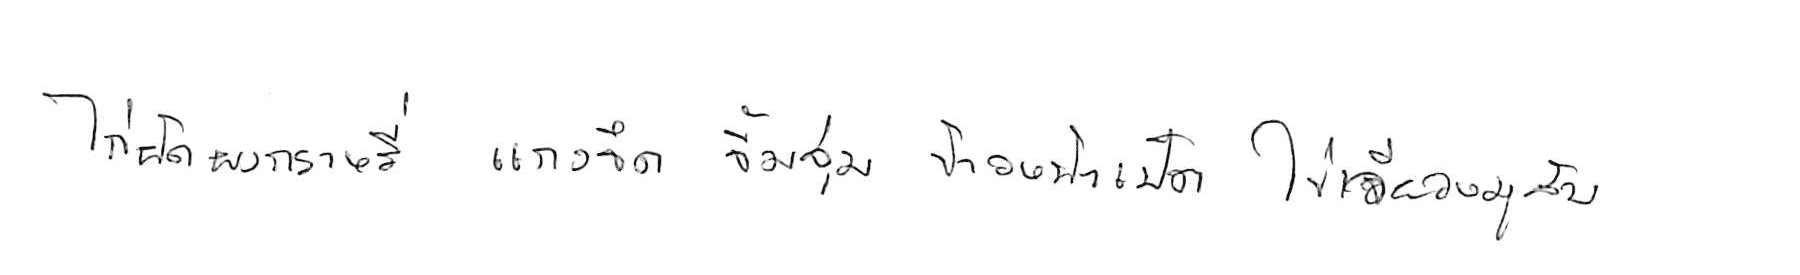 ไก่ผัดผงกราหรี่ แกงจืด จิ้มจุ่ม ข้าวหน้าเป็ด ไข่เจียวหมูสับ